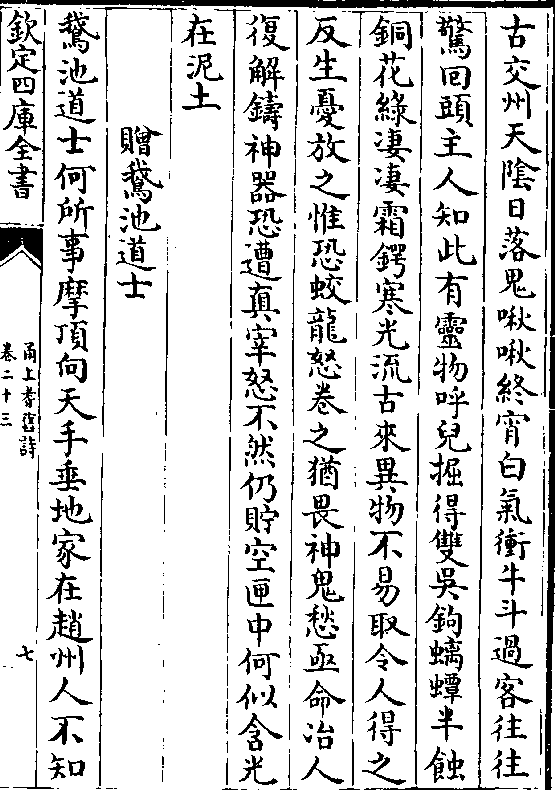 古交州天陰日落鬼啾啾終宵白氣衝牛斗過客往往
驚回頭主人知此有靈物呼兒掘得雙吳鉤螭蟫半蝕
銅花綠凄凄霜鍔寒光流古來異物不易取令人得之
反生憂放之惟恐蛟龍怒卷之猶畏神鬼愁亟命冶人
復解鑄神器恐遭真宰怒不然仍貯空匣中何似含光
在泥土
贈鵞池道士
鵞池道士何所事摩頂向天手垂地家在趙州人不知
欽定四庫全書
甬上耆舊詩
卷二十三
七